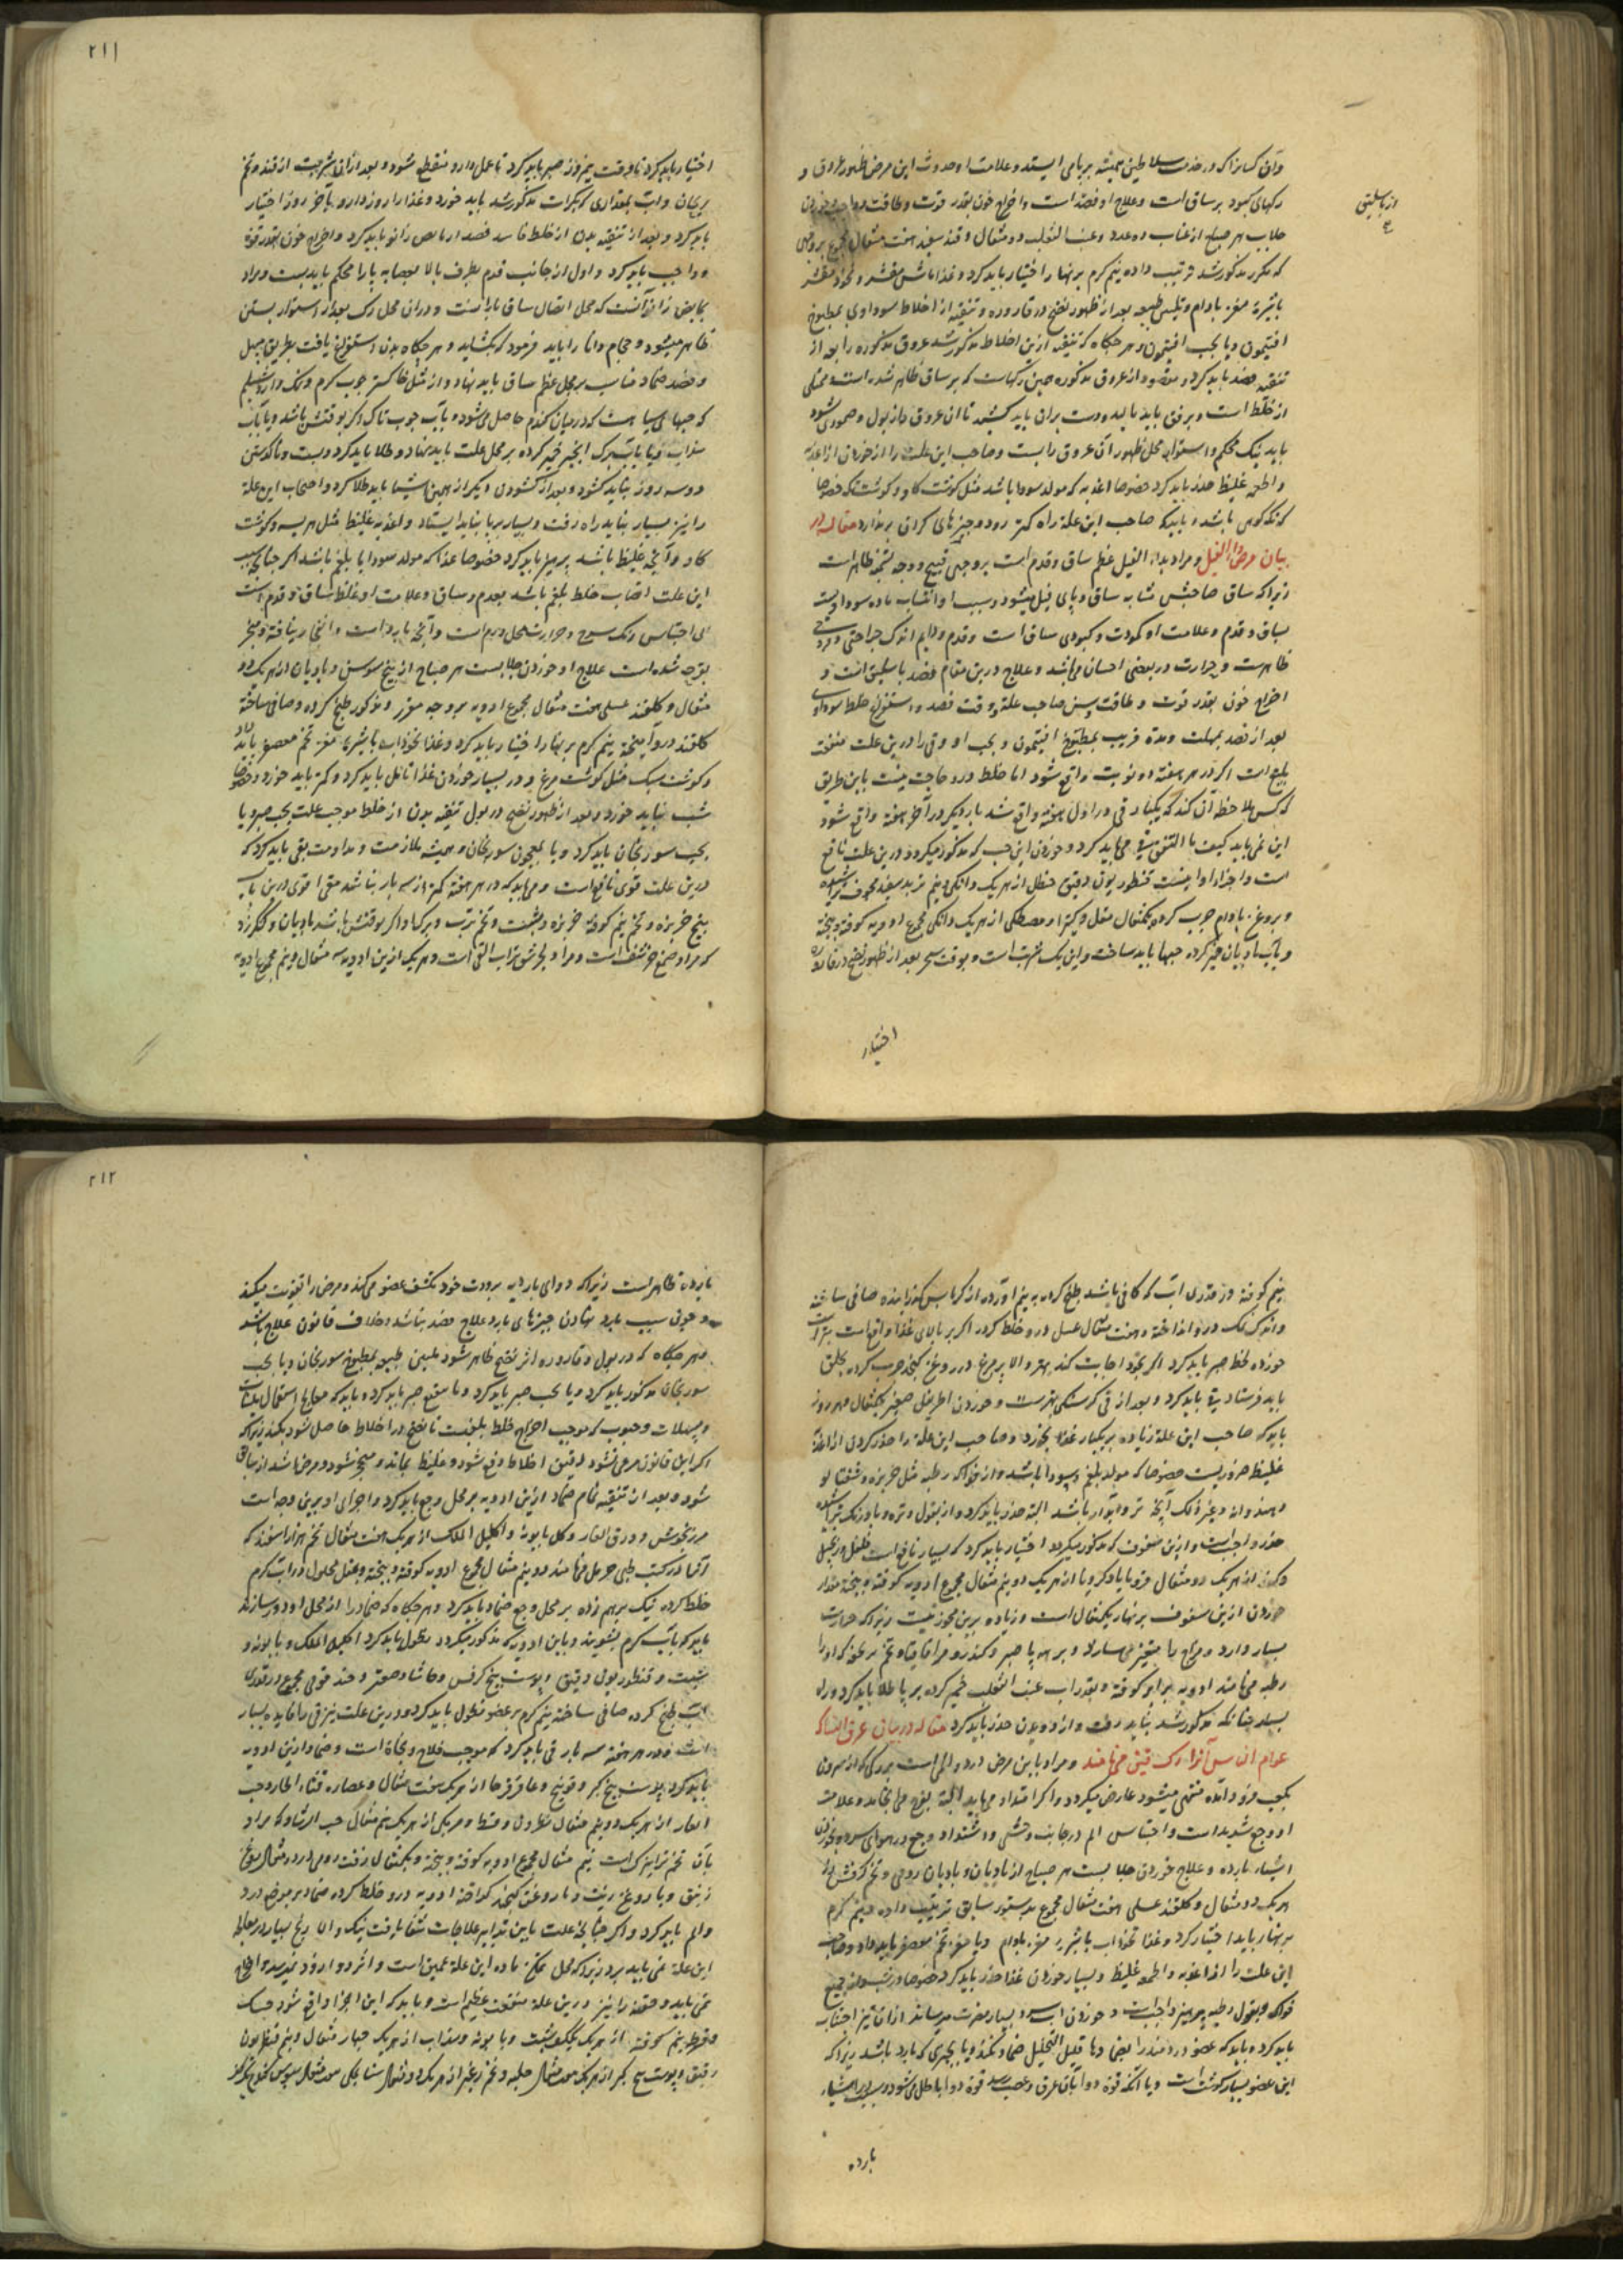 وآن کسانرا که در خدمت سلاطین همیشه بر پا می ایستند و علامت او حدوث این مرض ظهور عروق و
رکهای کبود بر ساق است و علاج او فصد است و اخراج خون بقدر قوت و طاقت و خوردن
جلاب هر صباح از عناب ده عدد و عنب الثعلب دو مثقال و قند سفید هفت مثقال مجموع بر وجهی
که مکرر مذکور شد ترتیب داده نیم کرم بر نهار اختیار باید کرد و غذا ماش مقشر و نخود مقشر
باشیره مغز بادام و تلیین طبیعه بعد از ظهور نضج در قاروره و تنقیه از اخلاط سوداوی بمطبوخ
افتیمون و یا بحب افتیمون و هر جکاه که تنقیه ازین اخلاط مذکور شد عروق مذکوره را بعد از
تنقیه فصد باید کرد و مقصود از عروق مذکوره همین رکهاست که بر ساق ظاهر شده است و ممتلی
از خلط است و برفق باید مالید و دست بران باید کشید تا ان عروق
باید نیک محکم و استوار محل ظهور آن عروق را بست و صاحب این علت را از خوردن از اغذیه
و اطعمه غلیظ حذر باید کرد خصوصا اغذیه که مولد سودا باشد مثل کوشت کاو و کوشت
باشد و باید که صاحب این علة راه کمتر رود و چیزهای کران بر ندارد مقاله در
بیان مرض داء الفیل و مراد بداء الفیل عظم ساق و قدم است بر وجهی قبیح و وجه تسمیه ظاهر است
زیرا که ساق صاحبش مشابه ساق و پای فیل میشود و سبب او انصباب ماده سوداویست
بساق و قدم و علامت او کمودت و کبودی ساق است و قدم و دایم اندک جراحتی و
ظاهرست و حرارت در بعضی احیان میباشد و علاج درین مقام فصد باسلیق است و
اخراج خون بقدر قوت و طاقت و سن صاحب علة و وقت فصد و استفراغ خلط سوداوی
بعد از فصد بمهلت و مدة قریب بمطبوخ افتیمون و بحب او و قی را درین علت منفعت
بلیغ است اکر در هر هفته دو نوبت واقع شود اما خلط در و حاجت نیست باین طریق
که کس ملاحظه آن کند که یکبار قی در اول هفته واقع شد بار دیکر در آخر هفته واقع شود
این نمی باید کیف ما اتفق قی میباید کرد و خوردن این حب که مذکور میکردد درین علت نافع
است و اجزاء او اینست قنطوریون دقیق حنظل از هریک دانکی و نیم تربد سفید مجوف تراشیده
و بروغن بادام چرب کرده یکمثقال مقل و کتیرا و مصطکی از هریک دانکی مجموع ادویه کوفته و بیخته
و بآب بادیان خمیر کرده حبها باید ساخت و این یک شربت است و بوقت سحر بعد از ظهور نضج در قاروره
اختیار
۲۱۱
اختیار باید کرد تا وقت نیم روز صبر باید کرد تا عمل دارو منقطع شود و بعد ازان شربت از قند و تخم
ریحان و آب بمقداری که بکرات مذکور شد باید خورد و غذا را روز دارو بآخر روز اختیار
باید کرد و بعد از تنقیه بدن از خلط فاسد فصد از مابض زانو باید کرد و اخراج خون بقدر قوة
واجب باید کرد و اول از جانب قدم بطرف بالا بعصابه پا را محکم باید بست و مراد
بمابض زانو آنست که محل اتصال ساق با رانست و دران محل رک بعد از استوار بستن
ظاهر میشود و حجام دانا را باید فرمود که بکشاید و هر جکاه بدن استفراغ یافت بطریق مسهل
و فصد ضماد مناسب بر محل عظم ساق باید نهاد و از مثل خاکستر چوب کرم و نمک و آرد شیلم
که حبهای سیاهست که در میان کندم حاصل می شود و بآب چوب تاک اکر بوقتش باشد و یا بآب
سداب و یا بآب برک انجیر خمیر کرده بر محل علت باید نهاد و طلا باید کرد و بست و تا
دو سه روز نباید کشود و بعد از کشودن دیکر از همین اشیا باید طلا کرد و اصحاب این علة
را نیز بسیار نباید راه رفت و بسیار بر پا نباید ایستاد و اغذیه غلیظ مثل هریسه و کوشت
کاو و آنچه غلیظ باشد پرهیز باید کرد خصوصا غذا که مولد سودا یا بلغم باشد اکر چنانچه سبب
این علت انصباب خلط بلغم باشد بقدم و ساق و علامت او غلظ ساق و قدم است
بی احتباس رنک سرخ و حرارت محل ورم است و آنچه بارد است و انفجار نیافته و
بقرحه شده است علاج او خوردن جلابست هر صباح از بیخ سوسن و بادیان از هریک دو
مثقال و کلقند عسلی هفت مثقال مجموع ادویه بر وجه مقرر و مذکور طبخ کرده و صافی ساخته
کلقند درو آمیخته نیم کرم بر نهار اختیار باید کرد و غذا نخوداب باشیره مغز تخم معصفر باید داد
و کوشت سبک مثل کوشت مرغ و در بسیار خوردن غذا تامل باید کرد و کمتر باید خورد و خصوصا
شب نباید خورد و بعد از ظهور نضج در بول تنقیه بدن از خلط موجب علت بحب صبر و یا
بحب سورنجان باید کرد و یا بمعجون سورنجان و همیشه ملازمت و مداومت بقی باید کرد که
درین علت قوی نافع است و میباید که در هر هفته کمتر از سه بار نباشد مقیء قوی درین باب
بیخ خربزه و تخم نیم کوفته خربزه و شبت و تخم ترب و برک او اکر بوقتش باشد بادیان و کنکرزد
که مراد صمغ حرشف است و مراد بحرشف تراب القی است و هریک ازین ادویه سه مثقال و نیم مجموع ادویه
نیم کوفته و در قدری آب که کافی باشد طبخ کرده به نیم آورده از کرباس کذرانیده صافی ساخته
و اندک نمک درو انداخته و هفت مثقال عسل درو خلط کرده اکر بر بالای غذا واقع است بهتر است
خورده لحظه صبر باید کرد اکر بخود اجابت کند بهتر والا پر مرغ در روغن کنجد چرب کرده بحلق
باید فرستاد و قی باید کرد و بعد از قی کرسنکی بهترست و خوردن اطریفل صغیر یکمثقال هر روز
باید که صاحب این علة زیاده بر یکبار غذا نخورد و صاحب این علة را حذر کردن از اغذیه
غلیظ ضروریست خصوصا که مولد بلغم و سودا باشد و از فواکه رطبه مثل خربزه و شفتالو
و هندوانه و غیر ذلک آنچه تر و آبدار باشد البته حذر باید کرد و از بقول و تره و بادرنک
حذر واجب است و ازین سفوف که مذکور میکردد اختیار باید کرد که بسیار نافع است فلفل و زنجبیل
از هریک دو مثقال قرویا و کرویا از هریک دو نیم مثقال مجموع ادویه کوفته و بیخته مقدار
خوردن ازین سفوف بر نهار یکمثقال است و زیاده برین مجوز نیست زیرا که حرارت
بسیار دارد و مزاج را متغیر میسازد و بر هر پا صبر و کندر و مر و اقاقیا و تخم
رطبه میخوانند ادویه برابر کوفته و بقدر آب عنب الثعلب خمیر کرده بر پا طلا باید کرد و راه
بسیار چنانکه مذکور شد نباید رفت و از دویدن حذر باید کرد مقاله در بیان عرق النسا که
عوام الناس آنرا رک قیتی میخوانند و مراد باین مرض درد و المی است بر رکی که از سرون
بکعب فرود آمده منتهی میشود عارض میکردد و اکر امتداد می یابد البته بلنک می انجامد و علامت
او وجع شدید است و احتباس الم در جانب وحشی و اشتداد وجع در هوای سرد و خوردن
اشیاء بارده و علاج خوردن جلابست هر صباح از بادیان و بادیان رومی و تخم کرفش از
هریک دو مثقال و کلقند عسلی هفت مثقال مجموع بدستور سابق ترتیب داده و نیم کرم
بر نهار باید اختیار کرد و غذا نخوداب باشیره مغز بادام و یا مغز تخم معصفر باید داد و صاحب
این علت را از اغذیه و اطعمه غلیظ و بسیار خوردن غذا حذر باید کرد خصوصا در شب و از جمیع
فواکه و بقول رطبه پرهیز واجبست و خوردن آب سرد بسیار مضرت میرساند ازان نیز اجتناب
باید کرد و باید که عضو دردمند را بضماد قلیل التحلیل ضماد نکنند و یا بچیزی که بارد باشد زیرا که
این عضو بسیار کوشت است و یا آنکه قوة دوا بآن عرق و عصب رسد قوة دوا باطل می شود و بسبب اشیاء
بارده
۲۱۲
بارده ظاهر است زیرا که دوای بارد به برودت خود تکثیف عضو می کند و مرض را تقویت میکند
و چون سبب بارد نهادن چیزهای بارد علاج ضد نباشد و خلاف قانون علاج باشد
و هر جکاه که در بول و قاروره اثر نضج ظاهر شود تلیین طبیعه بمطبوخ سورنجان و یا بحب
سورنجان مذکور باید کرد و یا بحب صبر باید کرد و تا نضج صبر باید کرد و باید که معالج استعمال
و مسهلات و حبوب که موجب اخراج خلط بلغمیست تا نضج در اخلاط حاصل نشود نکند زیرا که
اکر این قانون مرعی نشود رقیق اخلاط دفع شود و غلیظ بماند و متحجر شود و مرض اشد از سابق
شود و بعد از تنقیه تمام ضماد ازین ادویه بر محل وجع باید کرد و اجزای او برین وجه است
مرزنجوش و ورق الغار و کل بابونه و اکلیل الملک از هریک هفت مثقال تخم هزار اسفند که
آنرا در کتب طبی حرمل میخوانند دو نیم مثقال مجموع ادویه کوفته و بیخته و بمقل محلول در آب کرم
خلط کرده نیک بر هم زده بر محل وجع ضماد باید کرد و هر جکاه که ضماد را از محل او دور سازند
باید که بآب کرم بشویند و باین ادویه که مذکور میکردد نطول باید کرد اکلیل الملک و بابونه و
شبت و قنطوریون دقیق و پوست بیخ کرفس و حاشا و صعتر و حند قوقی مجموع در قدری
آب طبخ کرده صافی ساخته نیم کرم بر عضو نطول باید کرد و درین علت نیز قی را فایده بسیار
است و در هر هفته سه بار قی باید کرد که موجب فلاح و نجاة است و ضماد ازین ادویه
باید کرد پوست بیخ کبر و فوتنج و عاقرقرحا از هریک هفت مثقال و عصاره قثاء الحمار و حب
الغار از هریک دو نیم مثقال نطرون و قسط و مر مکی از هریک نیم مثقال حب الرشاد که مراد
بآن تخم تره تیزک است نیم مثقال مجموع ادویه کوفته و بیخته و یکمثقال زفت رومی در ده مثقال روغن
زنبق و یا روغن زیت و یا روغن کنجد کداخته ادویه درو خلط کرده ضماد بر موضع درد
و الم باید کرد و اکر چنانچه علت باین تدابیر علاجات شفا یافت نیک و الا رنج بسیار در معالجه
این علة نمی باید برد زیرا که محل تمکن ماده این علة عمیق است و اثر دوا زود نمیرسد و الحاح
نمی باید و حقنه را نیز درین علة منفعت عظیم است و باید که این اجزا واقع شود حسک
و قرطم نیم کوفته از هریک یککف شبت و بابونه و سداب از هریک چهار مثقال و نیم قنطوریون
رقیق و پوست بیخ کبر از هریک سه مثقال حلبه و تخم از هریک دو مثقال سنا مکی سه مثقال سبوس کندم